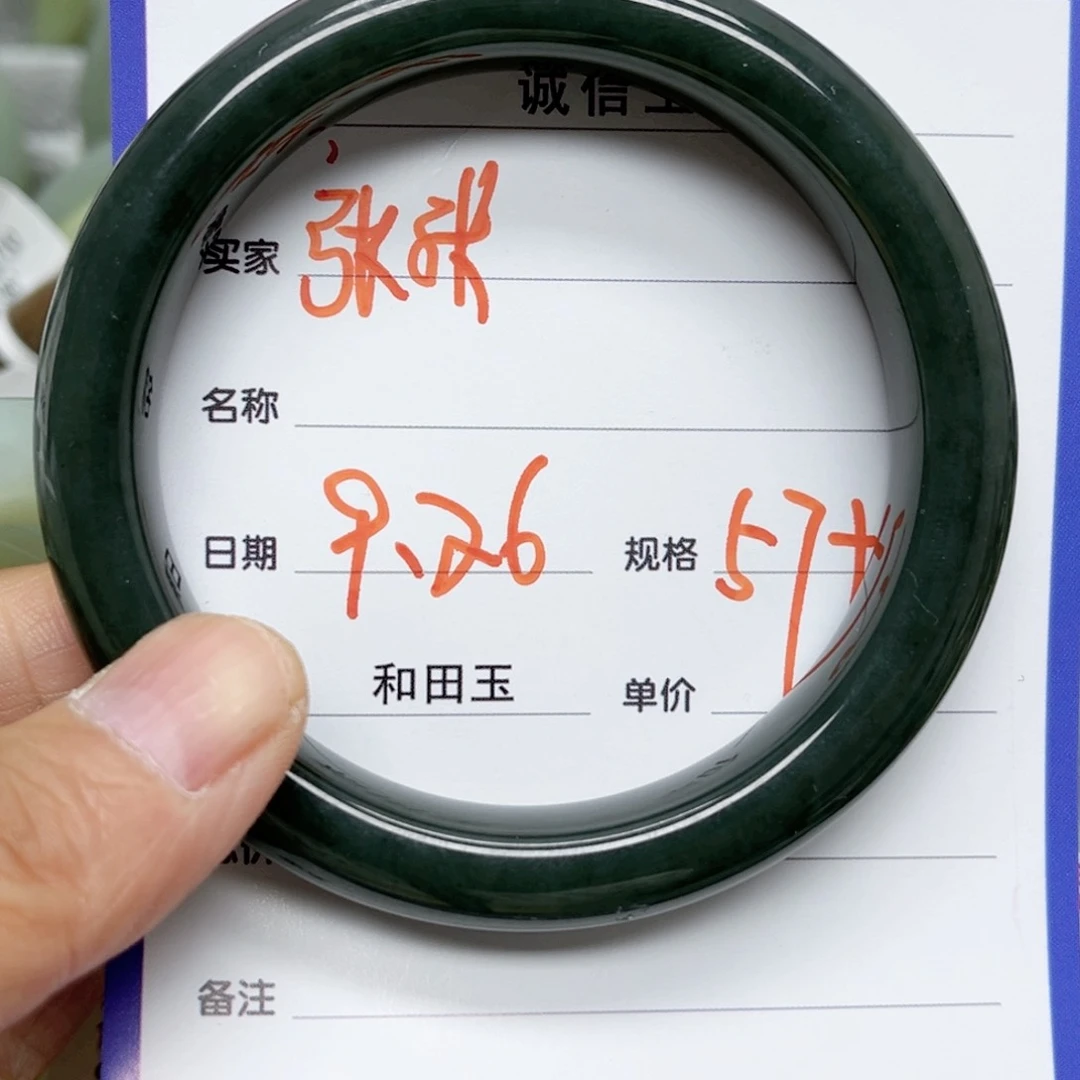 诚信玉
买家 张张
名称
日期 9.26 规格 57+
和田玉 单价
备注